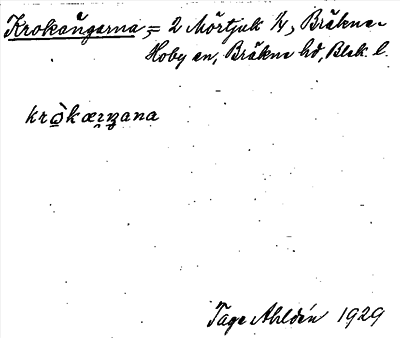 Krokängarna, = 2 Mörtjuk 1/4, Bräkne-
Hoby sn, Bräkne hd, Blek. l.
krò̱kæŋana
Tage Ahldén 1929